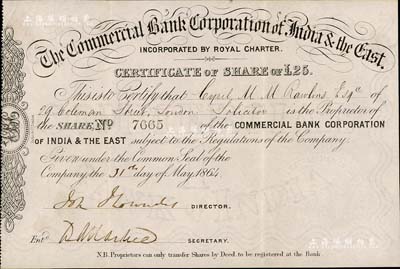 上海泓盛
The Commercial Bank Corporation of India & the East.
INCORPORATED BY ROYAL CHARTER.
CERTIFICATE OF SHARE OF £25.
This is to Certify that Cyril M. M. Rawlins Esqre of
29 Coleman Street, London Solicitor is the Proprietor of
the SHARE No 7665 of the COMMERCIAL BANK CORPORATION
OF INDIA & THE EAST subject to the Regulations of the Company.
Given under the Common Seal of the
Company, the 31st day of May 1864
DIRECTOR.
Entd
SECRETARY.
N.B. Proprietors can only transfer Shares by Deed to be registered at the Bank